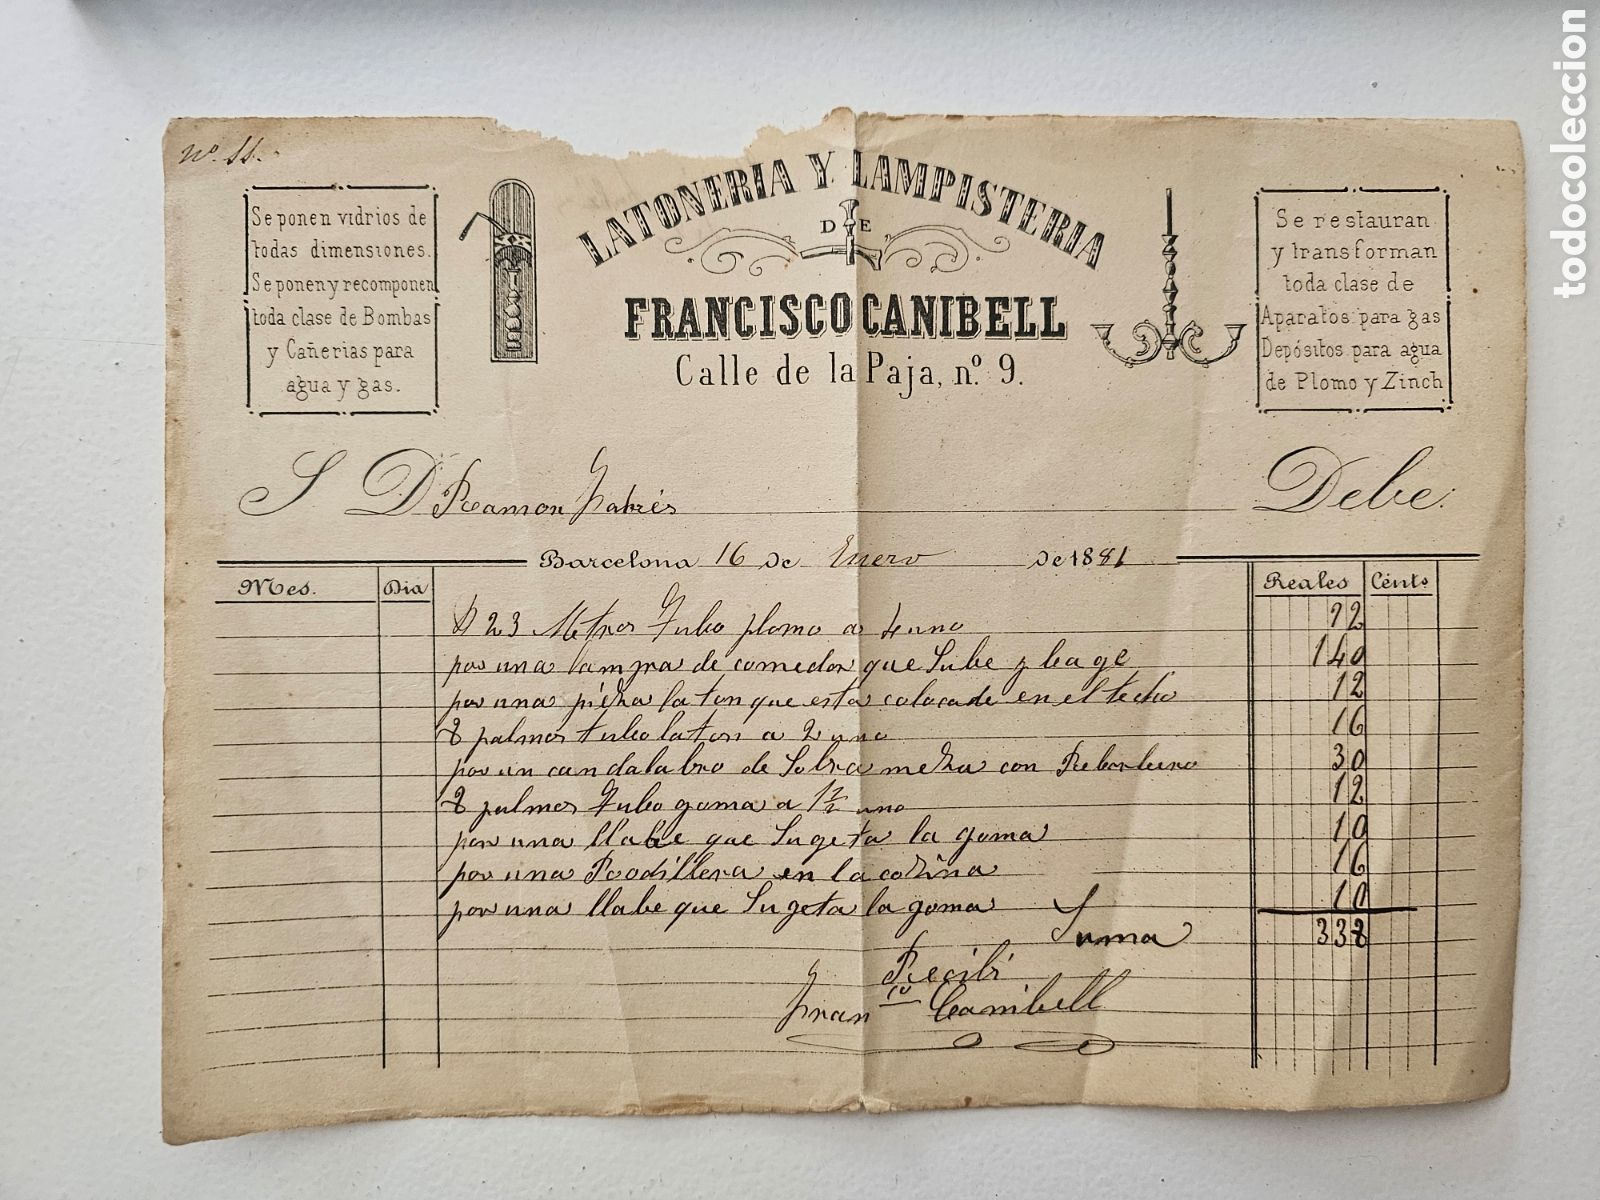 nº 11.
Se ponen vidrios de
todas dimensiones.
Se ponen y recomponen
toda clase de Bombas
y Cañerias para
agua y gas.
LATONERIA Y LAMPISTERIA
DE
FRANCISCO CANIBELL
Calle de la Paja, nº 9.
Se restauran
y transforman
toda clase de
Aparatos para gas
Depósitos para agua
de Plomo y Zinch
S D Ramon Fabrés Debe
Barcelona 16 de Enero de 1881
Mes. Dia Reales Cénts
23 Metros Tubo plomo a 4 uno 92
por una lampra de comedor que Sube y bage 140
por una pieza laton que esta colocade en el techo 12
8 palmos tubo laton a 2 uno 16
por un candalabro de Sobra meza con 30
8 palmos Tubo goma a 1½ uno 12
por una llabe que Sugeta la goma 10
por una Rodillera en la cozina 16
por una llabe que Sugeta la goma 10
Suma 338
Recibi
Franco Canibell
todocoleccion